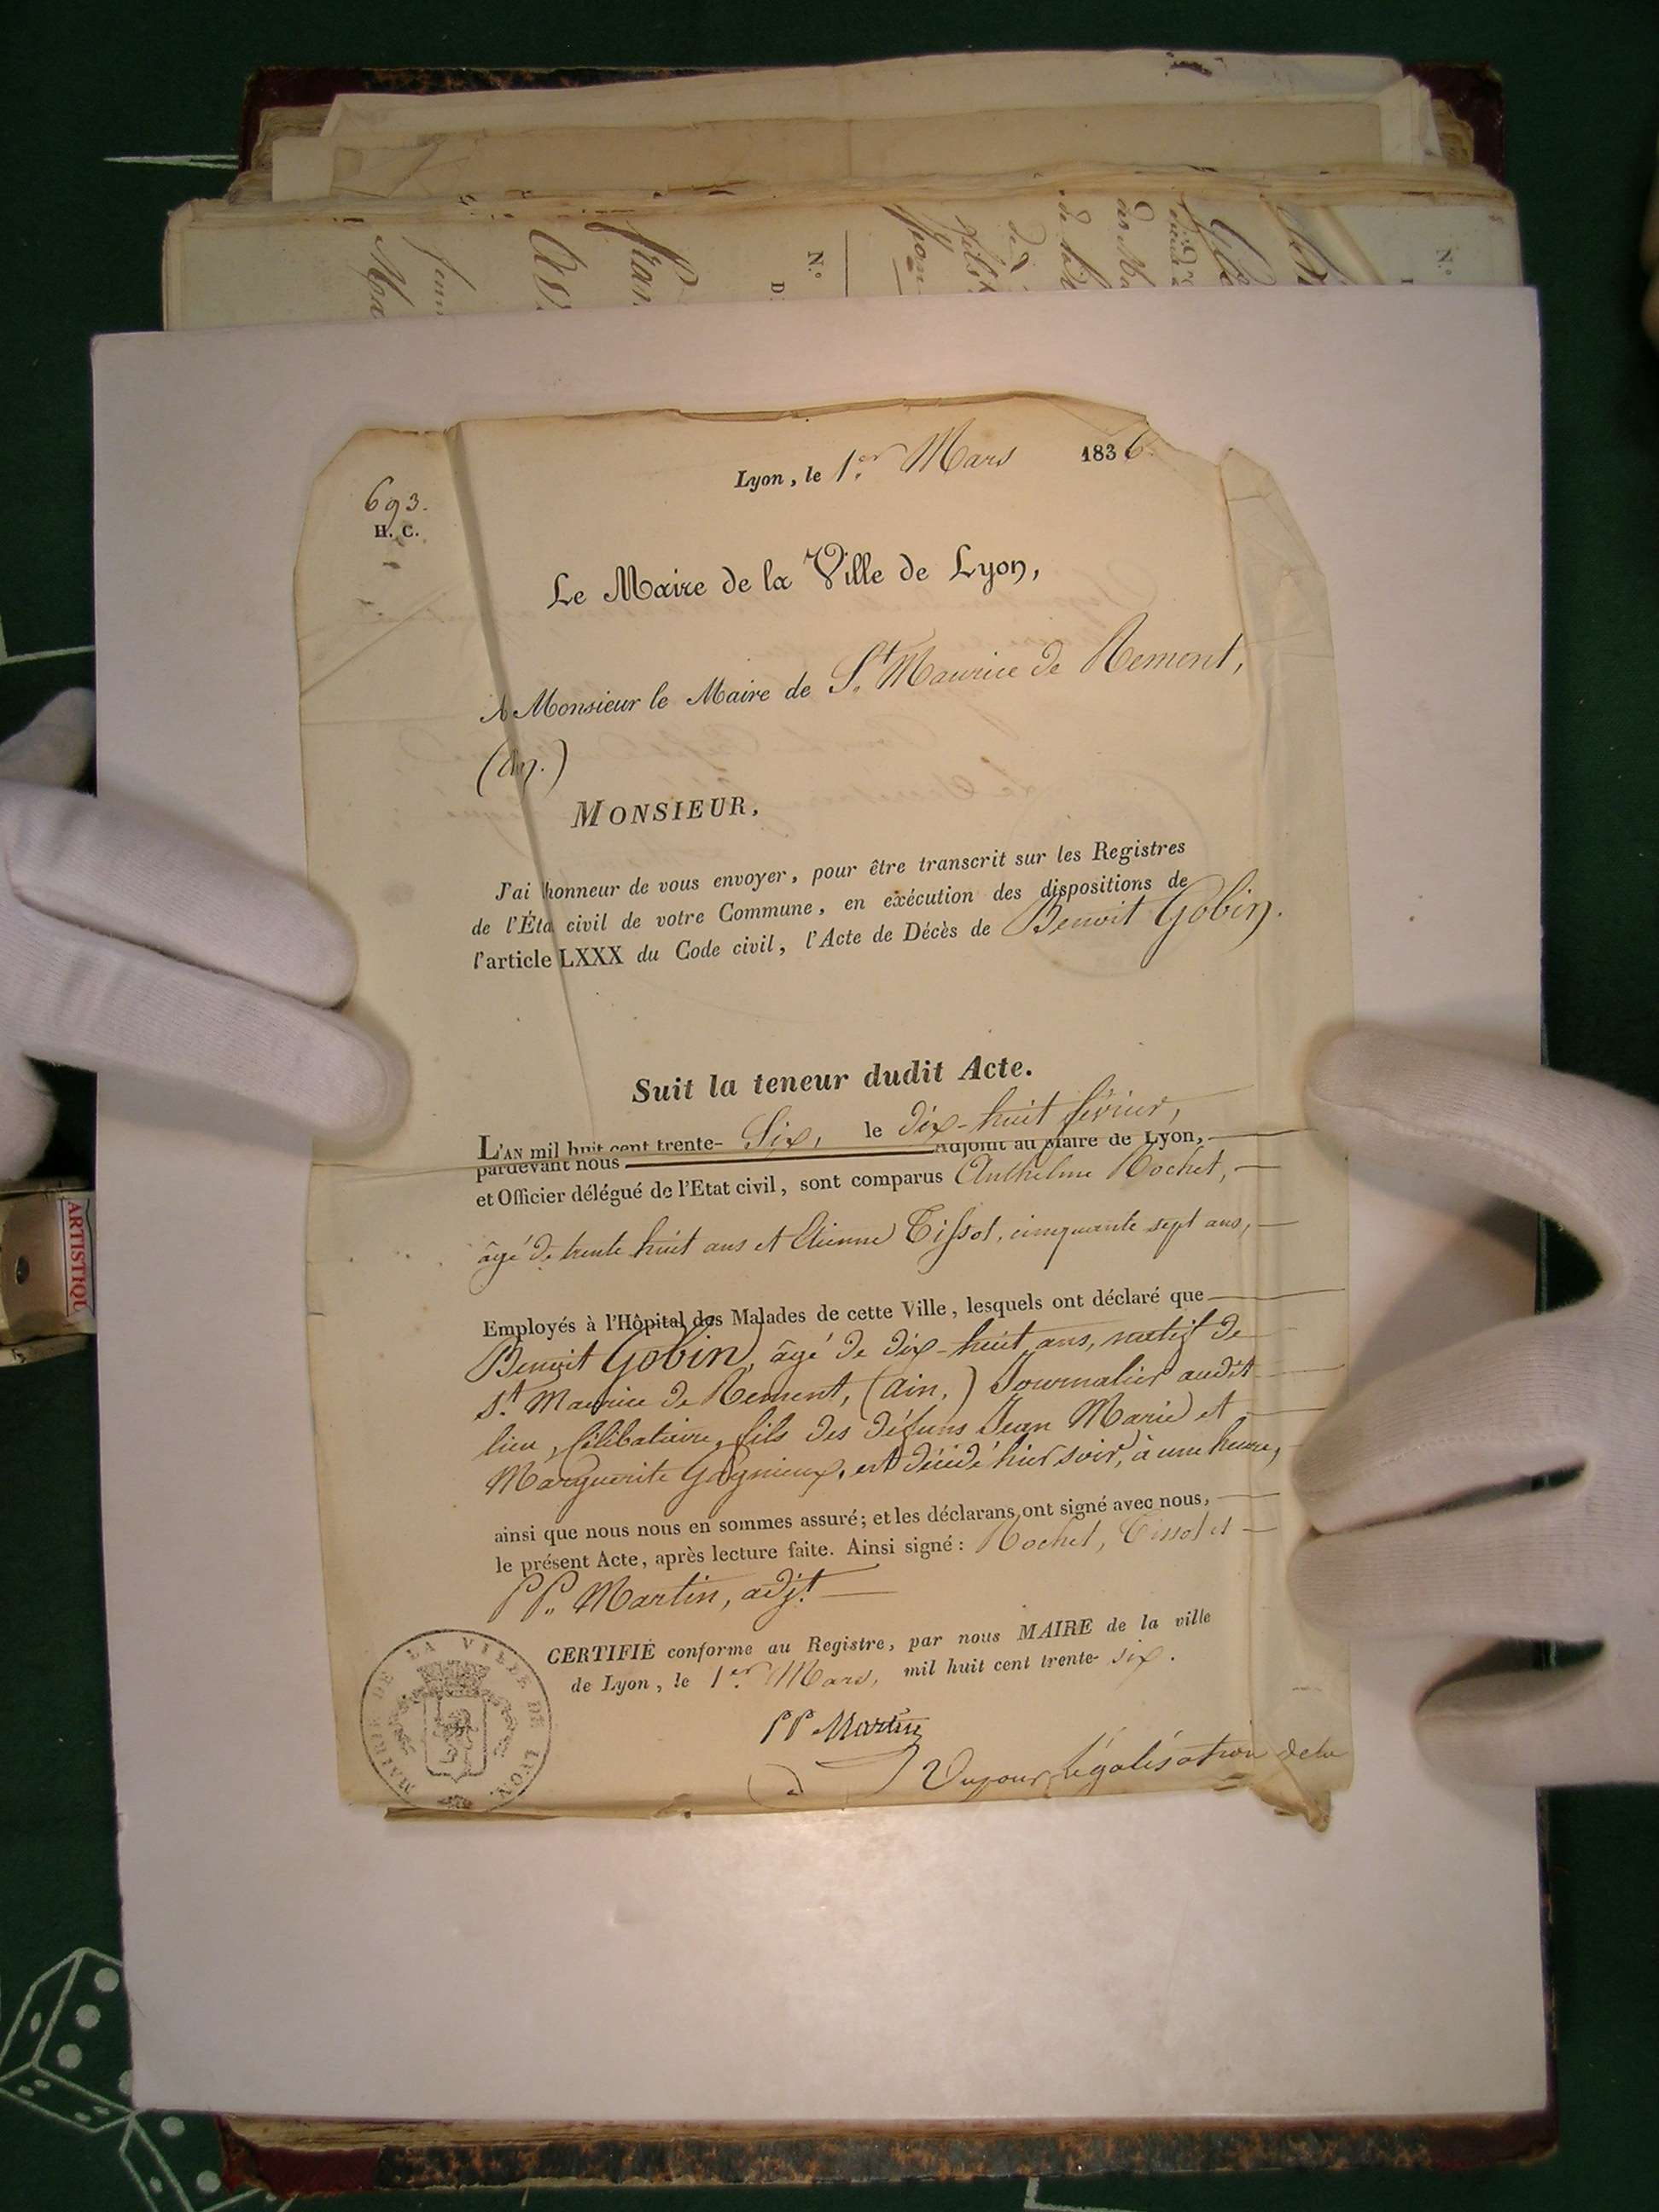 N.º
N.º
D.
693.
H. C.
Lyon, le 1.er Mars 1836
Le Maire de la Ville de Lyon,
A Monsieur le Maire de S.t Maurice de Rement,
(Ain.)
MONSIEUR,
J'ai honneur de vous envoyer, pour être transcrit sur les Registres
de l'Éta civil de votre Commune, en exécution des dispositions de
l'article LXXX du Code civil, l'Acte de Décès de Benoit Gobin.
Suit la teneur dudit Acte.
L'AN mil huit cent trente- Six, le dix-huit février,
pardevant nous Adjoint au Maire de Lyon,
et Officier délégué de l'Etat civil, sont comparus Anthelme Rochet,
âgé de trente huit ans et Etienne Tissot, cinquante sept ans,
Employés à l'Hôpital des Malades de cette Ville, lesquels ont déclaré que
Benoit Gobin, âgé de dix-huit ans, natif de
S.t Maurice de Rement, (Ain.) Journalier audit
lieu, Célibataire, fils des défuns Jean Marie et
Marguerite Gagnieux, est décédé hier soir, à une heure,
ainsi que nous nous en sommes assuré; et les déclarans ont signé avec nous,
le présent Acte, après lecture faite. Ainsi signé: Rochet, Tissot et
PP. Martin, adj.t
CERTIFIÉ conforme au Registre, par nous MAIRE de la ville
de Lyon, le 1.er Mars, mil huit cent trente- six.
PP Martin
MAIRIE DE LA VILLE DE LYON.
Vu pour légalisation de la
ARTISTIQU